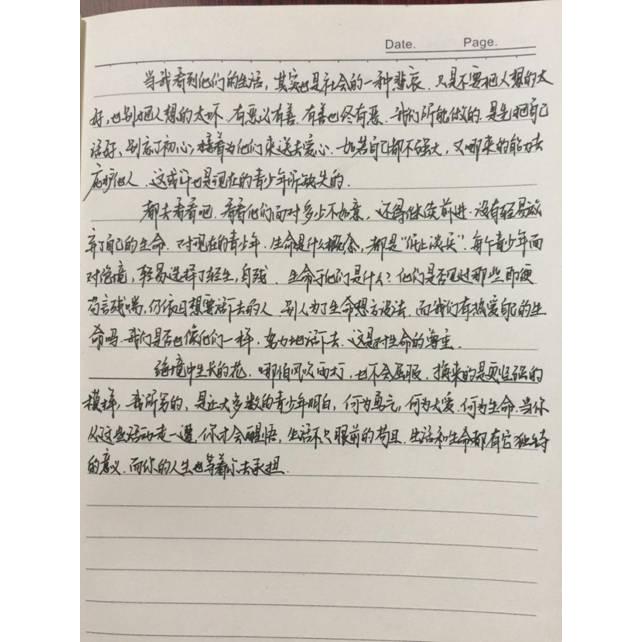 Date. Page.
当我看到他们的生活，其实也是社会的一种悲哀．只是不要把人想的太
好，也别把人想的太坏．有恶必有善．有善也终有恶．我们所能做的．是先把自己
活好、别忘了初心，接着为他们来送去爱心．如若自己都不强大，又哪来的能力去
庇护他人．这或许也是现在的青少年所缺失的．
都去看看吧．看看他们面对多少不如意，还得继续前进．没有轻易放
弃了自己的生命．对现在的青少年．生命是什么概念，都是“纸上谈兵”．每个青少年面
对困境，轻易选择了轻生，自残．生命于他们是什么？他们是否见过那些即便
苟言残喘，仍依旧想要活下去的人．别人为了生命想方设法．而我们有热爱自己的生
命吗．我们是否也像他们一样．努力地活下去．这是对生命的尊重．
逆境中生长的花．哪怕风吹雨打．也不会屈服．换来的是更坚强的
模样，我所写的，是让大多数的青少年明白，何为勇气，何为大爱．何为生命．当你
从这些活动走一遭．你才会醒悟，生活不只眼前的苟且．生活和生命都有它独特
的意义．而你的人生也等着你去承担．